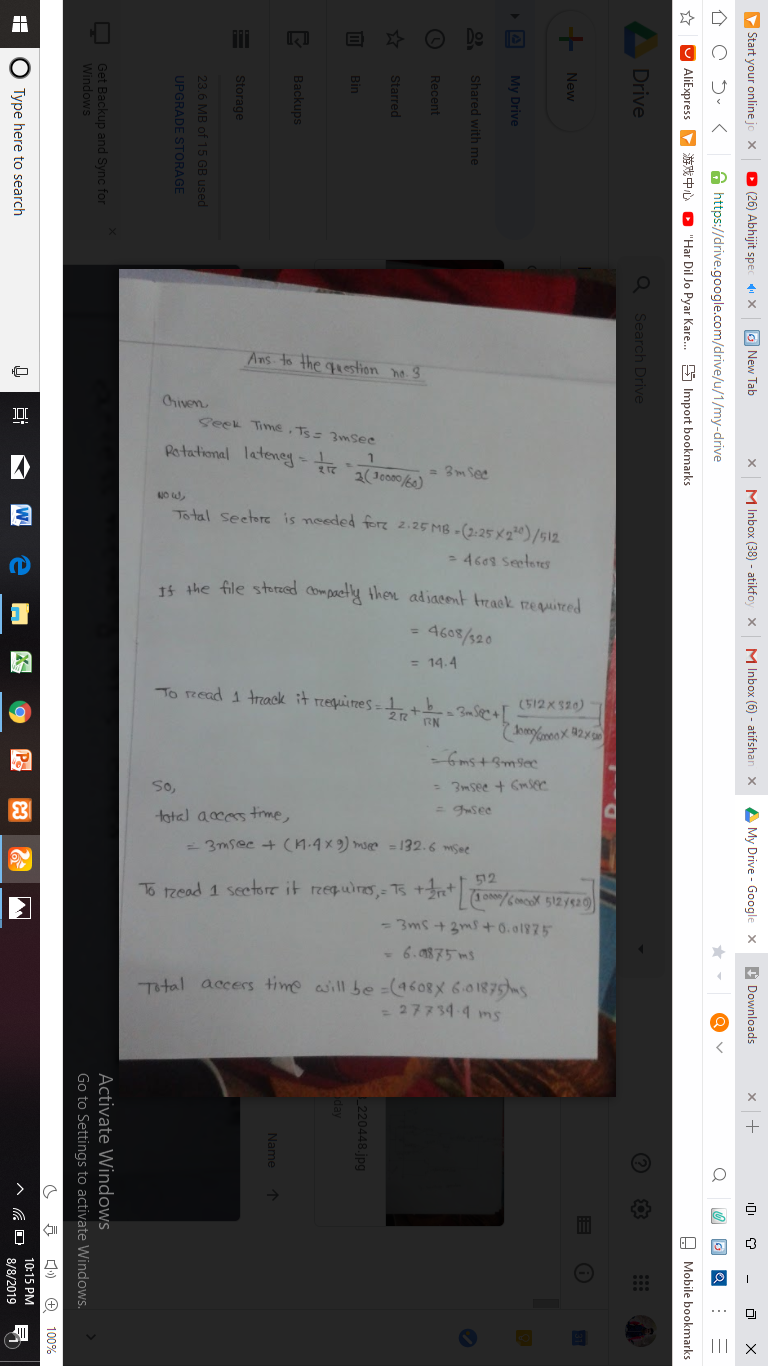 Start your online jc
(26) Abhijit spec
New Tab
Inbox (38) - atikfoy
Inbox (6) - atifshan
My Drive - Google
Downloads
https://drive.google.com/drive/u/1/my-drive
AliExpress
游戏中心
"Har Dil Jo Pyar Kare...
Import bookmarks
Mobile bookmarks
Drive
Search Drive
New
My Drive
Shared with me
Recent
Starred
Bin
Backups
Storage
23.6 MB of 15 GB used
UPGRADE STORAGE
Get Backup and Sync for
Windows
Name
_220448.jpg
day
Ans. to the question no. 3
Given,
Seek Time, Ts = 3msec
Rotational latency = 1/2r = 1/2(10000/60) = 3msec
Now,
Total sectors is needed for 2.25MB = (2.25×2^20)/512
= 4608 sectors
If the file stored compactly then adjacent track required
= 4608/320
= 14.4
To read 1 track it requires = 1/2r + b/rN = 3msec + [(512×320)
= 6ms+3msec
= 3msec + 6msec
= 9msec
So,
total access time,
= 3msec + (14.4×9) msec = 132.6 msec
To read 1 sectors it requires, = Ts + 1/2r + [512/(10000/60000×512×320)]
= 3ms + 3ms + 0.01875
= 6.01875ms
Total access time will be = (4608×6.01875)ms
= 27734.4 ms
Activate Windows
Go to Settings to activate Windows.
100%
Type here to search
10:15 PM
8/8/2019
1